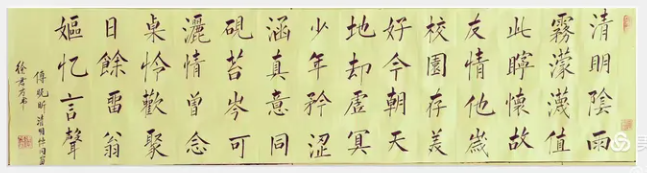 清明陰雨
霧濛濛值
此懷故
友情他歲
校園存美
好今朝天
地却虛冥
少年矜澀
涵真意同
硯苔岑可
灑情曾念
桌怜歡聚
日餘雷翁
嫗忆言聲
清明